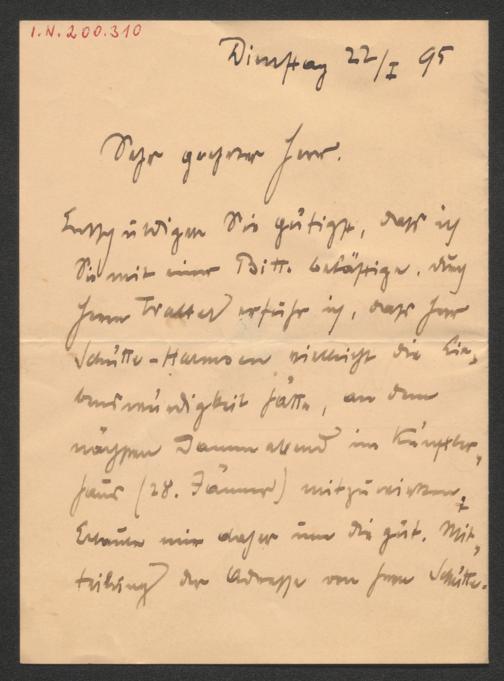 I.N. 200.310
Dienstag 22/I 95
Sehr geehrter Herr.
Entschuldigen Sie gütigst, dass ich
Sie mit einer Bitte belästige. Durch
Herrn erfuhr ich, dass Herr
Schütte-Harmsen vielleicht die Lie-
benswürdigkeit hätte, an dem
nächsten Damenabend im Künstler-
haus (28. Jänner) mitzuwirken,
Erlaube mir daher um die güt. Mit-
teilung der Adresse von Herrn Schütte-